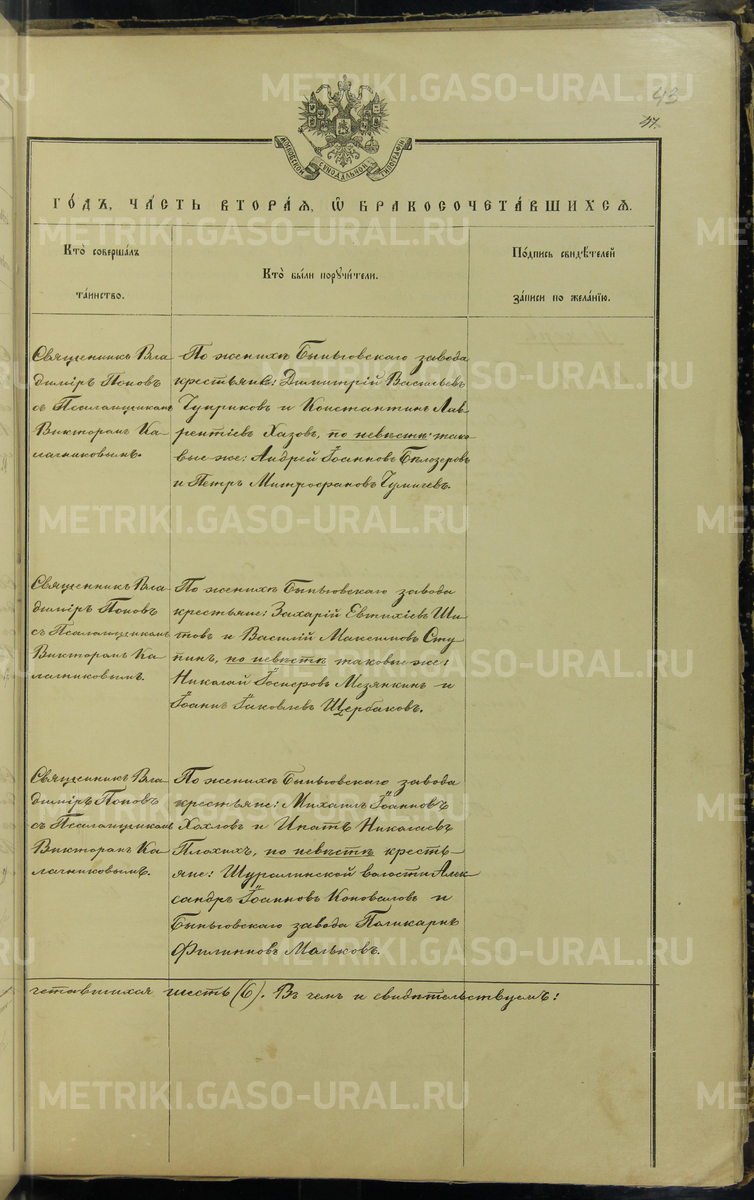 43
37.
МОСКОВСКОЙ СѴНОДАЛЬНОЙ ТИПОГРАФІИ
ГО́ДЪ, ЧА́СТЬ ВТОРА́Я, Ѡ҆ БРАКОСОЧЕТА́ВШИХСЯ.
Кто̀ соверша́лъ
та́инство.
Кто̀ бы́ли порꙋчи́тели.
По́дпись свидѣ́телей
за́писи по жела́нїю.
Священникъ Вла-
димiръ Поповъ
съ Псаломщикомъ
Викторомъ Ка-
лачниковымъ.
По женихѣ Быньговскаго завода
крестьяне: Димитрій Васильевъ
Чуприковъ и Константинъ Лав-
рентіевъ Хазовъ, по невѣстѣ: тако-
вые же: Андрей Іоанновъ Бѣлозеровъ
и Петръ Митрофановъ Чумичевъ.
Священникъ Вла-
димiръ Поповъ
съ Псаломщикомъ
Викторомъ Ка-
лачниковымъ.
По женихѣ Быньговскаго завода
крестьяне: Захарій Евтихіевъ Ши-
товъ и Василій Максимовъ Сту-
пинъ, по невѣстѣ таковые же:
Николай Мезянкинъ и
Іоаннъ Іаковлевъ Щербаковъ.
Священникъ Вла-
димiръ Поповъ
съ Псаломщикомъ
Викторомъ Ка-
лачниковымъ.
По женихѣ Быньговскаго завода
крестьяне: Михаилъ Іоанновъ
Хохловъ и Ипатъ Николаевъ
Плохихъ, по невѣстѣ кресть-
яне: Шуралинской волости Алек-
сандръ Іоанновъ Коноваловъ и
Быньговскаго завода Поликарпъ
Филипповъ Мальковъ.
четавшихся шесть (6). Въ чемъ и свидѣтельствуемъ:
METRIKI.GASO-URAL.RU